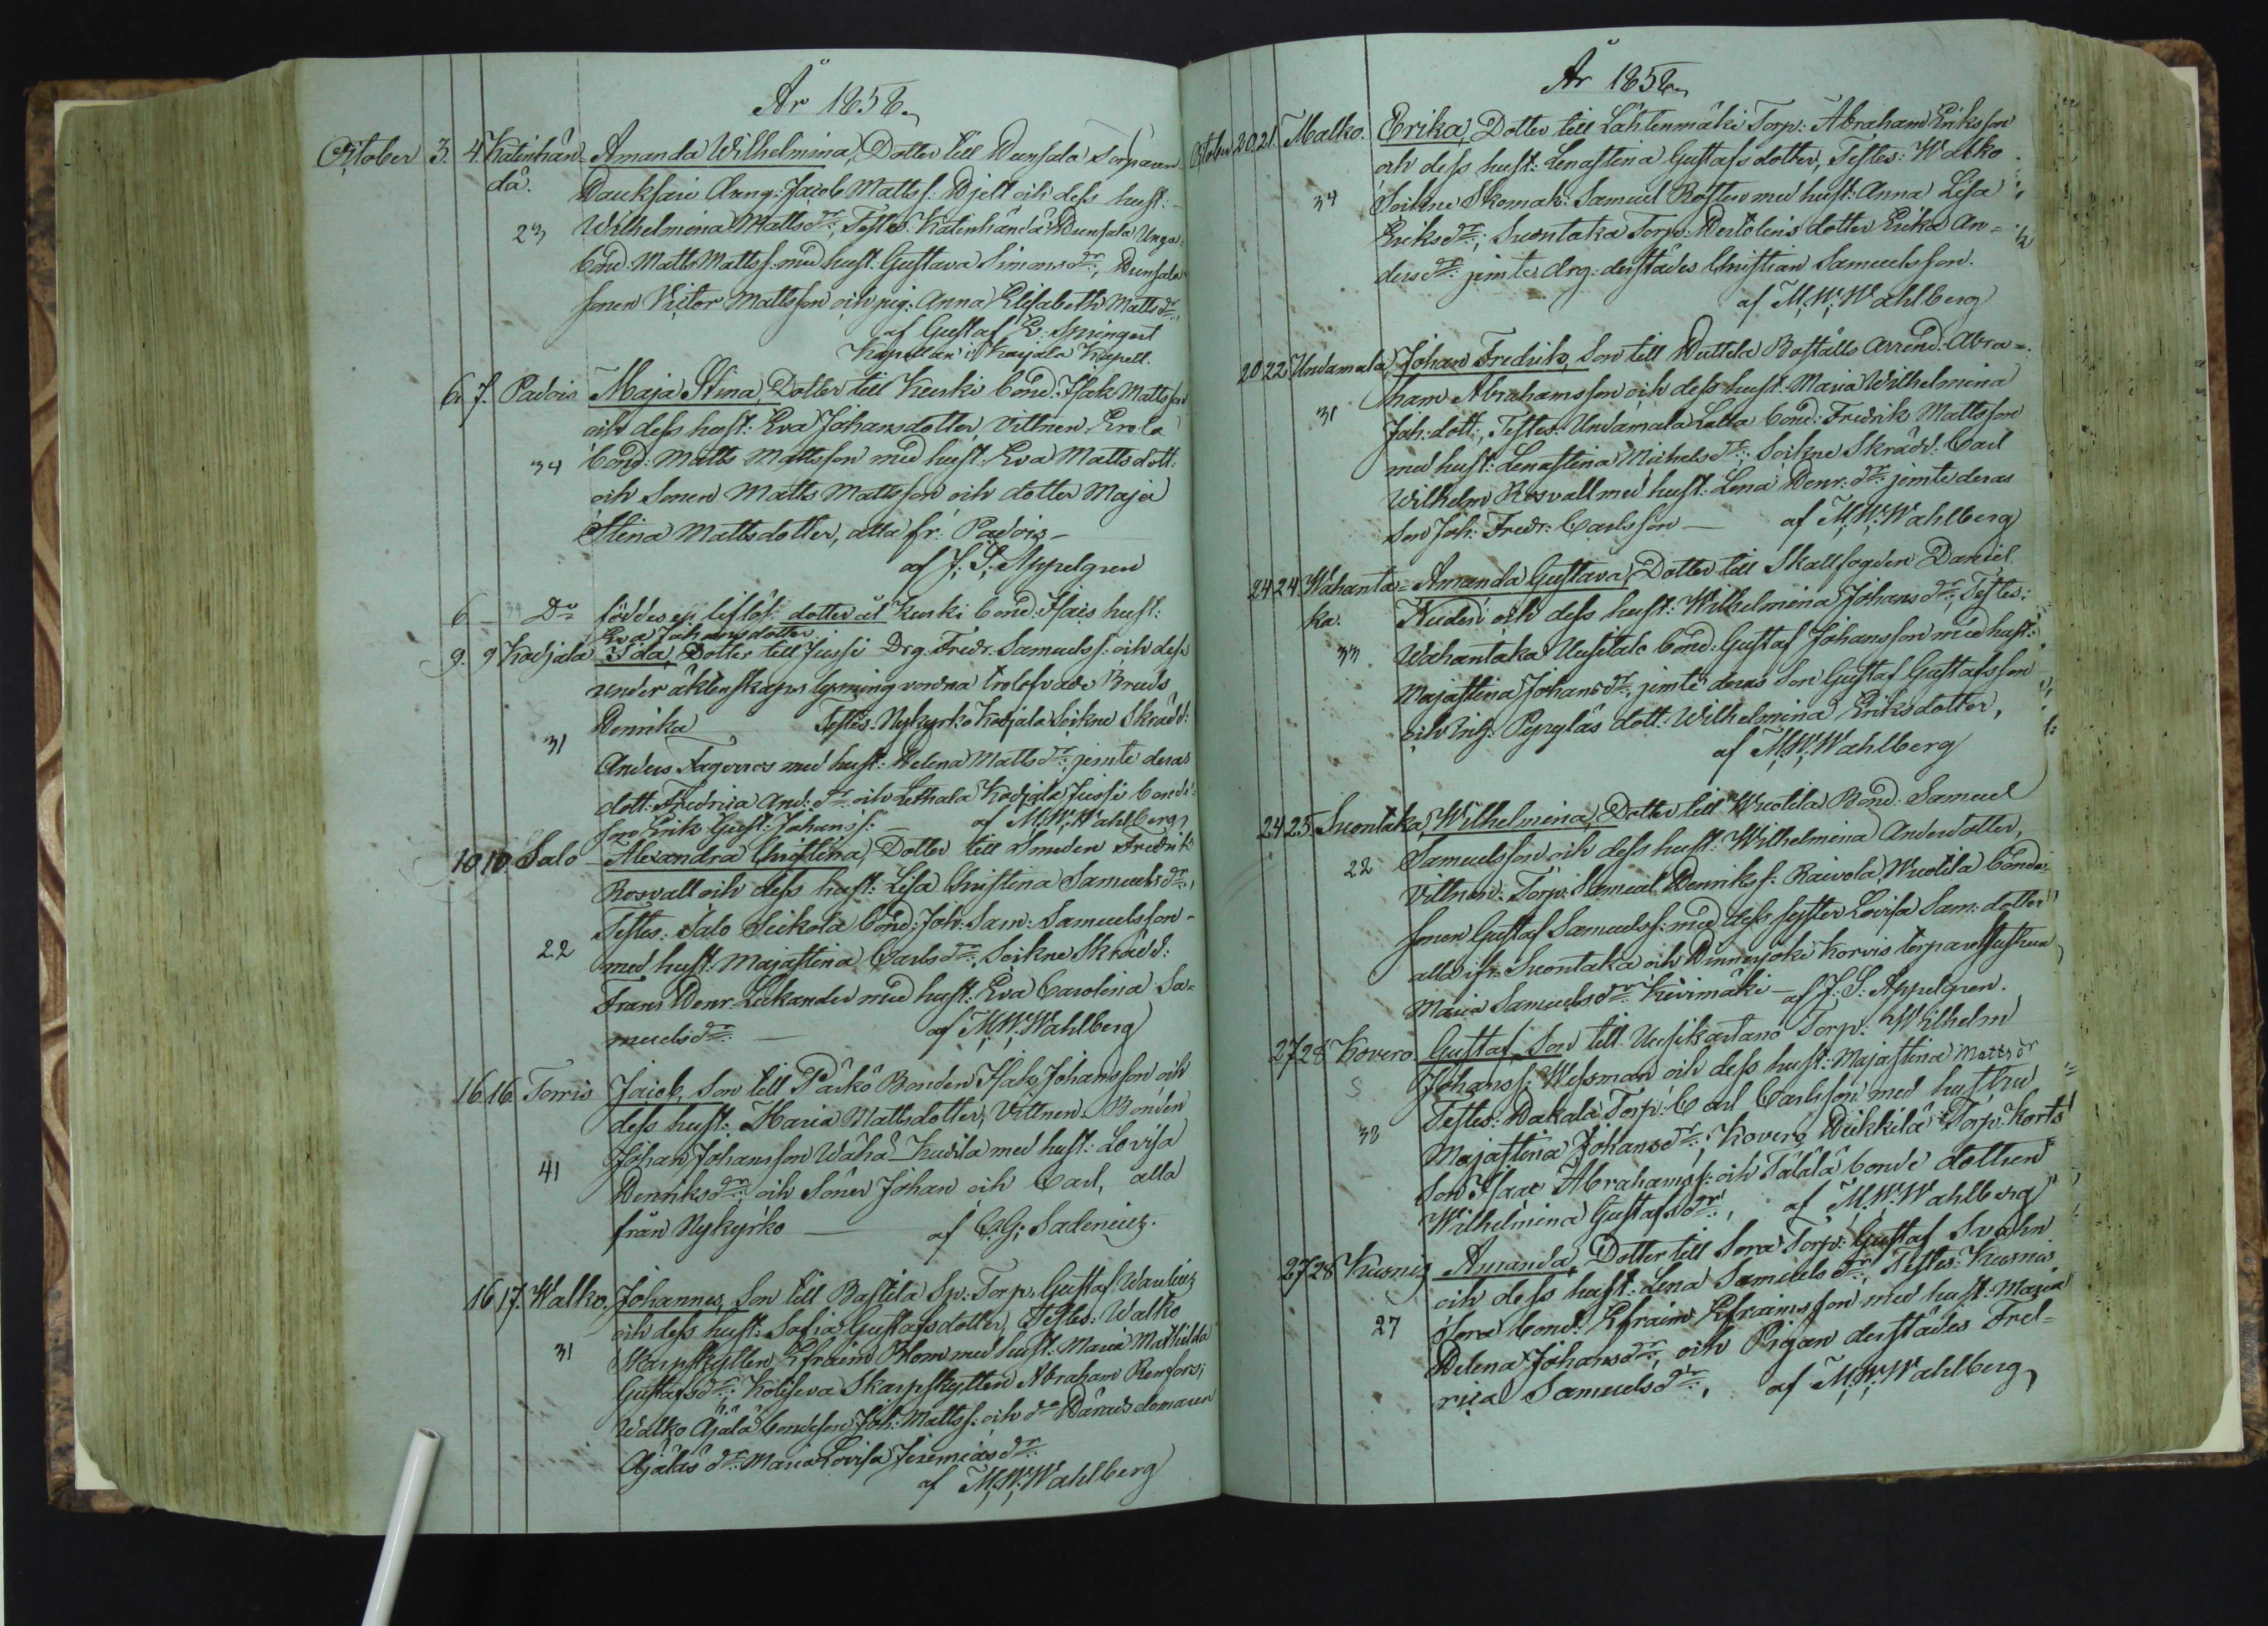 År 1858.
October 3. 4. Katinhän= Amanda Wilhelmina, Dotter till Hunsala Torparen
dä. Hauksari Aring: Jacob Matts s: Hjelt och dess hust:
23 Wilhelmina Matts dr:, Testes: Katinhändä Hunsala Unga
Bond: Matts Matts s: med hust: Gustava Simons dr:, Hunsala
sonen Victor Mattsson och pig: Anna Elisabeth Matts dr:,
af Gustaf E: Springert
Kapellan i Karjala Kapell.
6. 7. Padois Maja Stina, Dotter till Kurki Bond: Isak Mattsson
och dess hust: Eva Johansdotter, Vittnen: Erola
34 Bond: Matts Mattsson med hust: Eva Matts dott:
och Sonen Matts Mattsson och dotter Maja
Stina Mattsdotter, alla fr: Padois –
af J. S. Appelgren
6 – 34 Do föddes en liflös dotter åt Kurki Bond: Isacs hust:
Eva Johansdotter
9. 9 Kodjala Ida, Dotter till Jussi Drg. Fredr. Samuels s: och dess
under äktenskaps lysning vordna trolofvade Bruds
Henrika Testes: Nykyrko Kodjala Sockne Skrädd:
31 Anders Fagerros med hust: Helena Matts dr:, jemte deras
dott: Fredrica And: dr: och Lethala Kodjala Jussi Bonde=
son Erik Gust: Johans s: af M. W. Wahlberg
10 10. Salo Alexandra Christina, Dotter till Smeden Fredrik
Rosvall och dess hust: Lisa Christina Samuels dr:,
Testes: Salo Seikola Bond: Joh: Sam: Samuelsson
22 med hust: Majastina Carls dr:, Sockne Skrädd:
Frans Henr. Lukander med hust: Eva Carolina Sa=
muels dr: – af M. W. Wahlberg
16 16. Torris Jacob, Son till Parko Bonden Isak Johansson och
dess hust: Maria Mattsdotter, Vittnen: Bonden
Johan Johansson Wähä Kuvila med hust: Lovisa
41 Henriks dr:, och Söner Johan och Carl, alla
från Nykyrko – af C. G. Sadeniuz.
16 17. Walko. Johannes, Son till Bastila Sp. Torp. Gustaf
och dess hust: Sofia Gustafsdotter, Testes: Walko
31 Skarpskytten Efraim Blom med hust: Maria Mathilda
Gustafs dr:, Skarpskytten Abraham Renfors,
Walko Äjälä bondeson Joh: Matts s: och do Häradsdomaren
Äjäläs dr: Maria Lovisa Jeremias dr:
af M. W. Wahlberg
År 1858.
October 20. 21. Malko. Erika, Dotter till Lähtenmäki Torp: Abraham Eriksson
och dess hust: Lenastina Gustafsdotter, Testes: Walko
34 Sockne Skomak: Samuel Roster med hust: Anna Lisa
Eriks dr:, Suontaka Torp: Hertolins dotter Erika An=
ders dr: jemte drg: derstädes Christian Samuelsson.
af M. W. Wahlberg
20 22 Undamala Johan Fredrik, Son till Huttila Boställs Arrend: Abra=
ham Abrahamsson och dess hust: Maria Wilhelmina
31 Joh: dott:, Testes: Undamala Lalla Bond: Fredrik Mattsson
med hust: Lenastina Michels dr:, Sockne Skrädd: Carl
Wilhelm Rosvall med hust: Lena Henr: dr: jemte deras
Son Joh: Fredr: Carlsson – af M. W. Wahlberg
24 24 Wahanta= Amanda Gustava, Dotter till Skallfogden Daniel
ka. och dess hust: Wilhelmina Johans dr:, Testes:
33 Wahantaka Uusitalo Bond: Gustaf Johansson med hust:
Majastina Johans dr:, jemte deras Son Gustaf Gustafsson
och Inh: dott: Wilhelmina Eriksdotter,
af M. W. Wahlberg
24 25. Suontaka Wilhelmina, Dotter till Wuotila Bond: Samuel
22 Samuelsson och dess hust: Wilhelmina Andersdotter,
Vittnen: Torp: Samuel Henriks s: Raivola, Wuotila Bonde
sonen Gustaf Samuels s: med dess syster Lovisa Sam: dotter
alla ifr. Suontaka och Hinnerjoki Korvis torpare hustrun
Maria Samuels dr: Kivimäki – af J. S. Appelgren.
27 28 Kovero. Gustaf, Son till Uusikartano Torp: Wilhelm
Johans s: Wessman och dess hust: Majastina Matts dr
38 Testes: Hakala Torp: Carl Carlsson med hustru
Majastina Johans dr:, Kovero Heikkilä Torp: Korts
Son Isaac Abrahams s: och Tälälä bonde dottren
Wilhelmina Gustafs dr:, af M. W. Wahlberg
27 28 Kusnis Amanda, Dotter till Sorva Torp: Gustaf Svahn
och dess hust: Lena Samuels dr:, Testes: Kusnis
27 Sorva bond: Efraim Efraimsson med hust: Maria
Helena Johans dr:, och Pigan derstädes Fred=
rica Samuels dr:, af M. W. Wahlberg